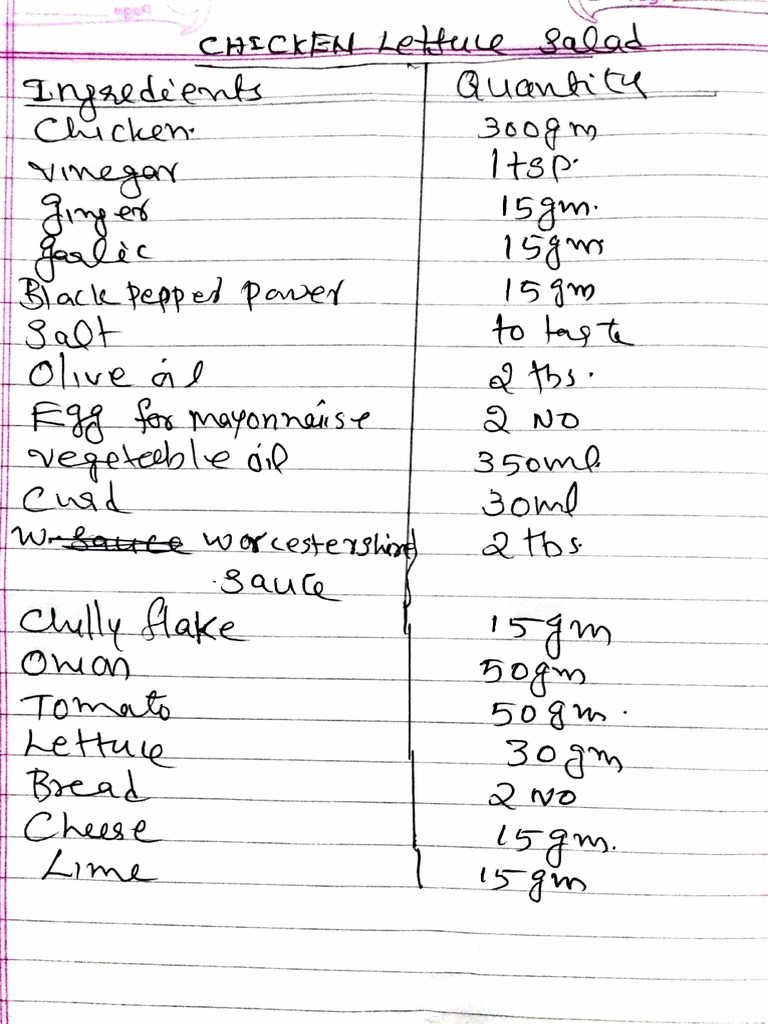 CHICKEN Lettuce Salad
Ingredients Quantity
Chicken. 300gm
Vinegar 1tsp.
Ginger 15gm.
Garlic 15gm
Black pepper power 15gm
Salt to taste
Olive oil 2 tbs.
Egg for mayonnaise 2 NO
vegeteable oil 350ml.
Curd 30ml
W-sauce worcestershire 2 tbs.
sauce
Chilly flake 15gm
Onion 50gm
Tomato 50gm.
Lettuce 30gm
Bread 2 NO
Cheese 15gm.
Lime 15gm